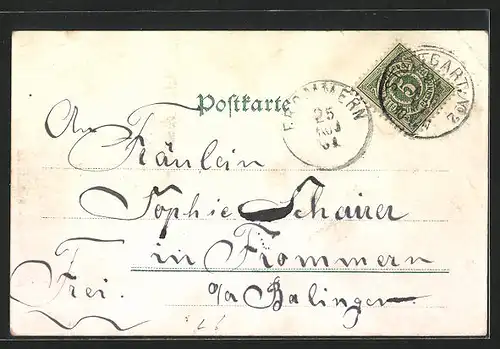 Postkarte
FROMMERN
25
STUTTGART No 2
5
An
Fräulein
Sophie Schairer
in Frommern
Frei. o/a Balingen